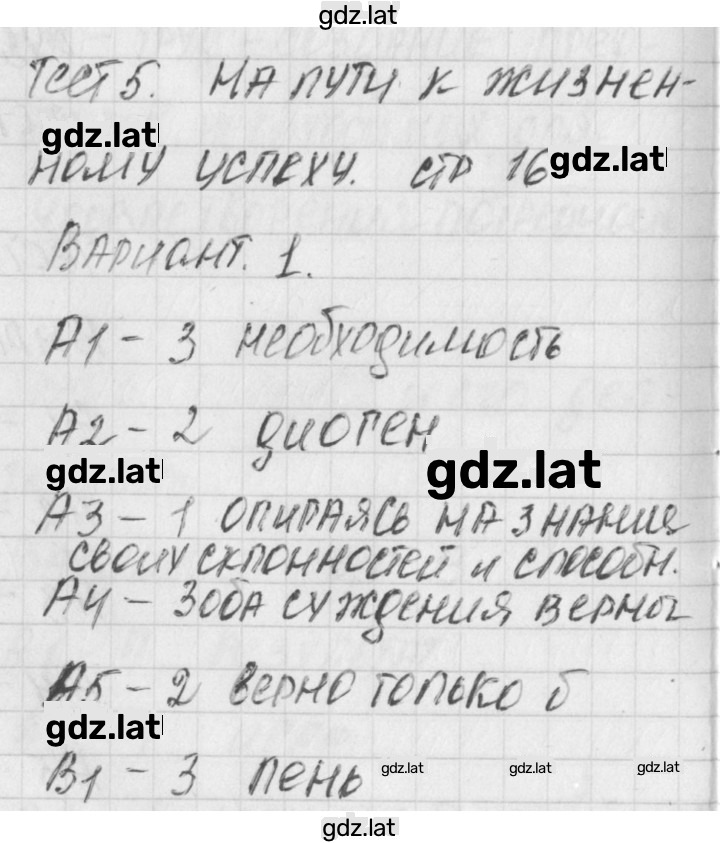 gdz.lat
Тест 5. На пути к жизнен-
gdz.lat
ному успеху. стр 16
gdz.lat
Вариант. 1.
А1 - 3 необходимость
А2 - 2 Диоген
gdz.lat
gdz.lat
А3 - 1 опираясь на знание
своих склонностей и способн.
А4 - 3 оба суждения верны
А5 - 2 верно только б
gdz.lat
В1 - 3 лень
gdz.lat
gdz.lat
gdz.lat
gdz.lat